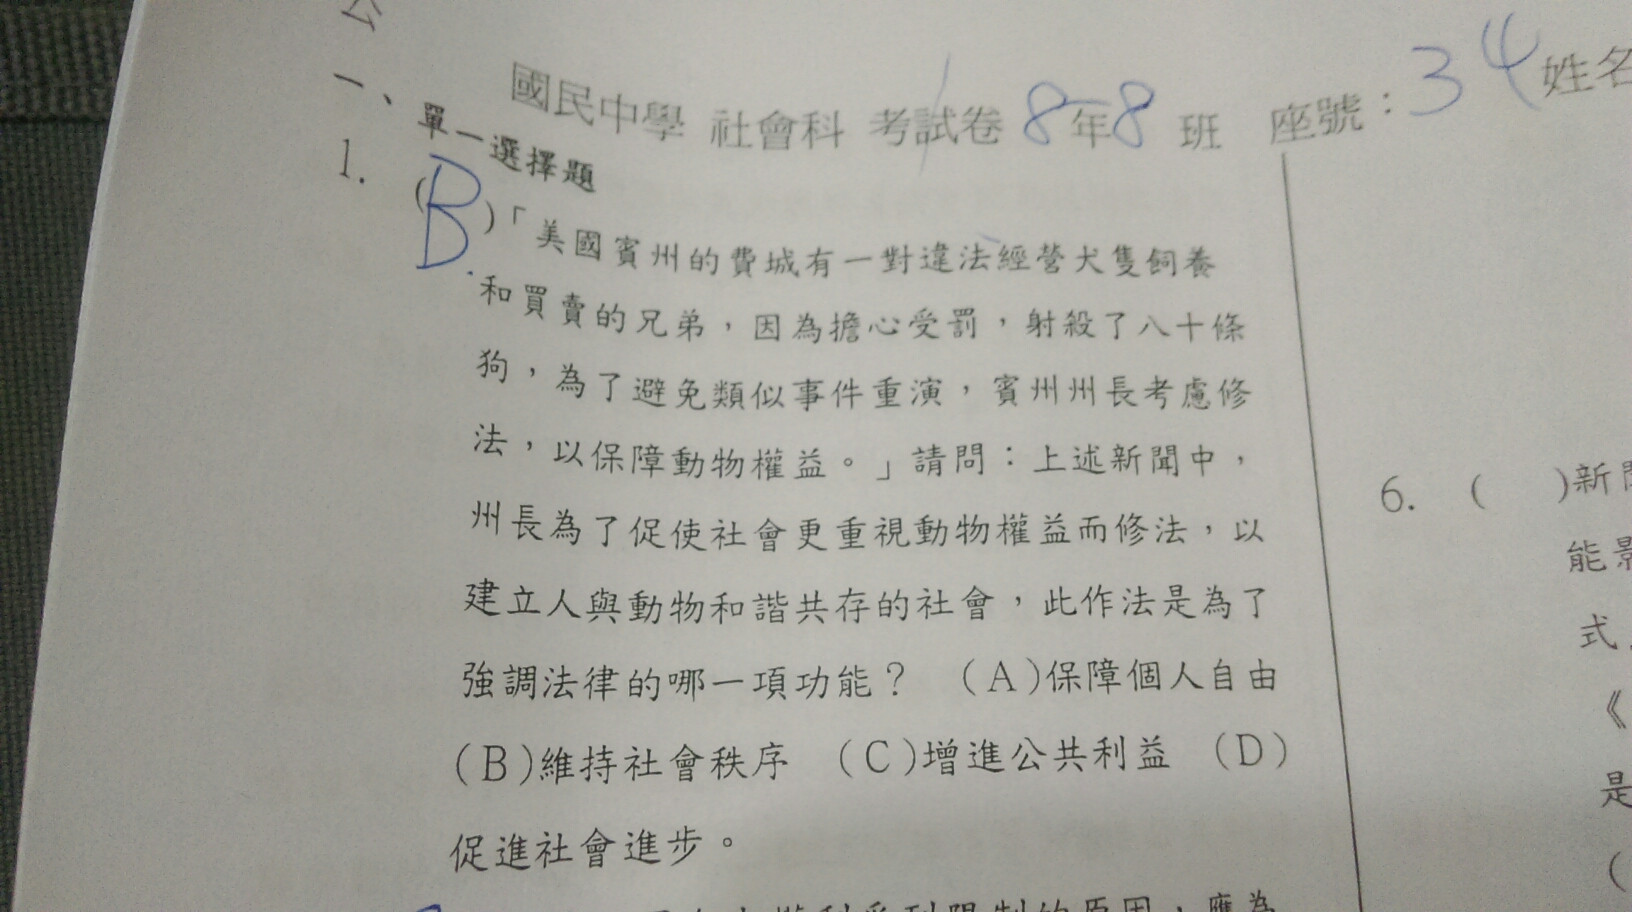 公
國民中學 社會科 考試卷 8年8班 座號：34 姓名
一、單一選擇題
1. (B)「美國賓州的費城有一對違法經營犬隻飼養
和買賣的兄弟，因為擔心受罰，射殺了八十條
狗，為了避免類似事件重演，賓州州長考慮修
法，以保障動物權益。」請問：上述新聞中，
州長為了促使社會更重視動物權益而修法，以
建立人與動物和諧共存的社會，此作法是為了
強調法律的哪一項功能？ (A)保障個人自由
(B)維持社會秩序 (C)增進公共利益 (D)
促進社會進步。
權利受到限制的原因，應為
6. ( )新聞
能影
式
《
是
(